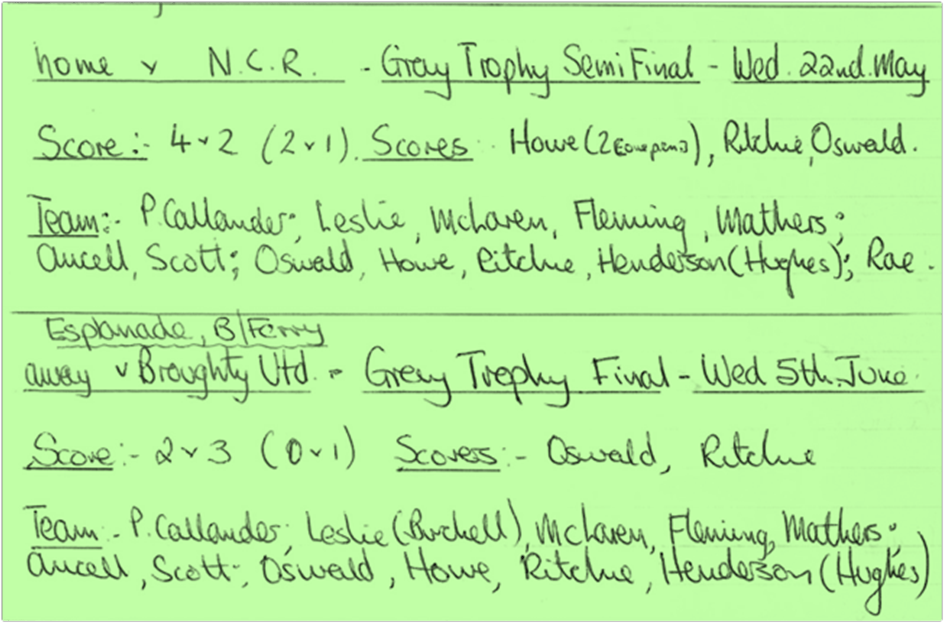 home v N.C.R. - Gray Trophy Semi Final - Wed. 22nd. May
Score:- 4 v 2 (2 v 1). Scores Howe (2 one pen), Ritchie, Oswald.
Team:- P. Callander; Leslie, McLaren, Fleming, Mathers;
Ancell, Scott; Oswald, Howe, Ritchie, Henderson (Hughes); Rae.
Esplanade, B/Ferry
away v Broughty Utd. - Gray Trophy Final - Wed 5th. June
Score:- 2 v 3 (0 v 1) Scorers:- Oswald, Ritchie
Team - P. Callander; Leslie (Burchell), McLaren, Fleming, Mathers;
Ancell, Scott; Oswald, Howe, Ritchie, Henderson (Hughes)